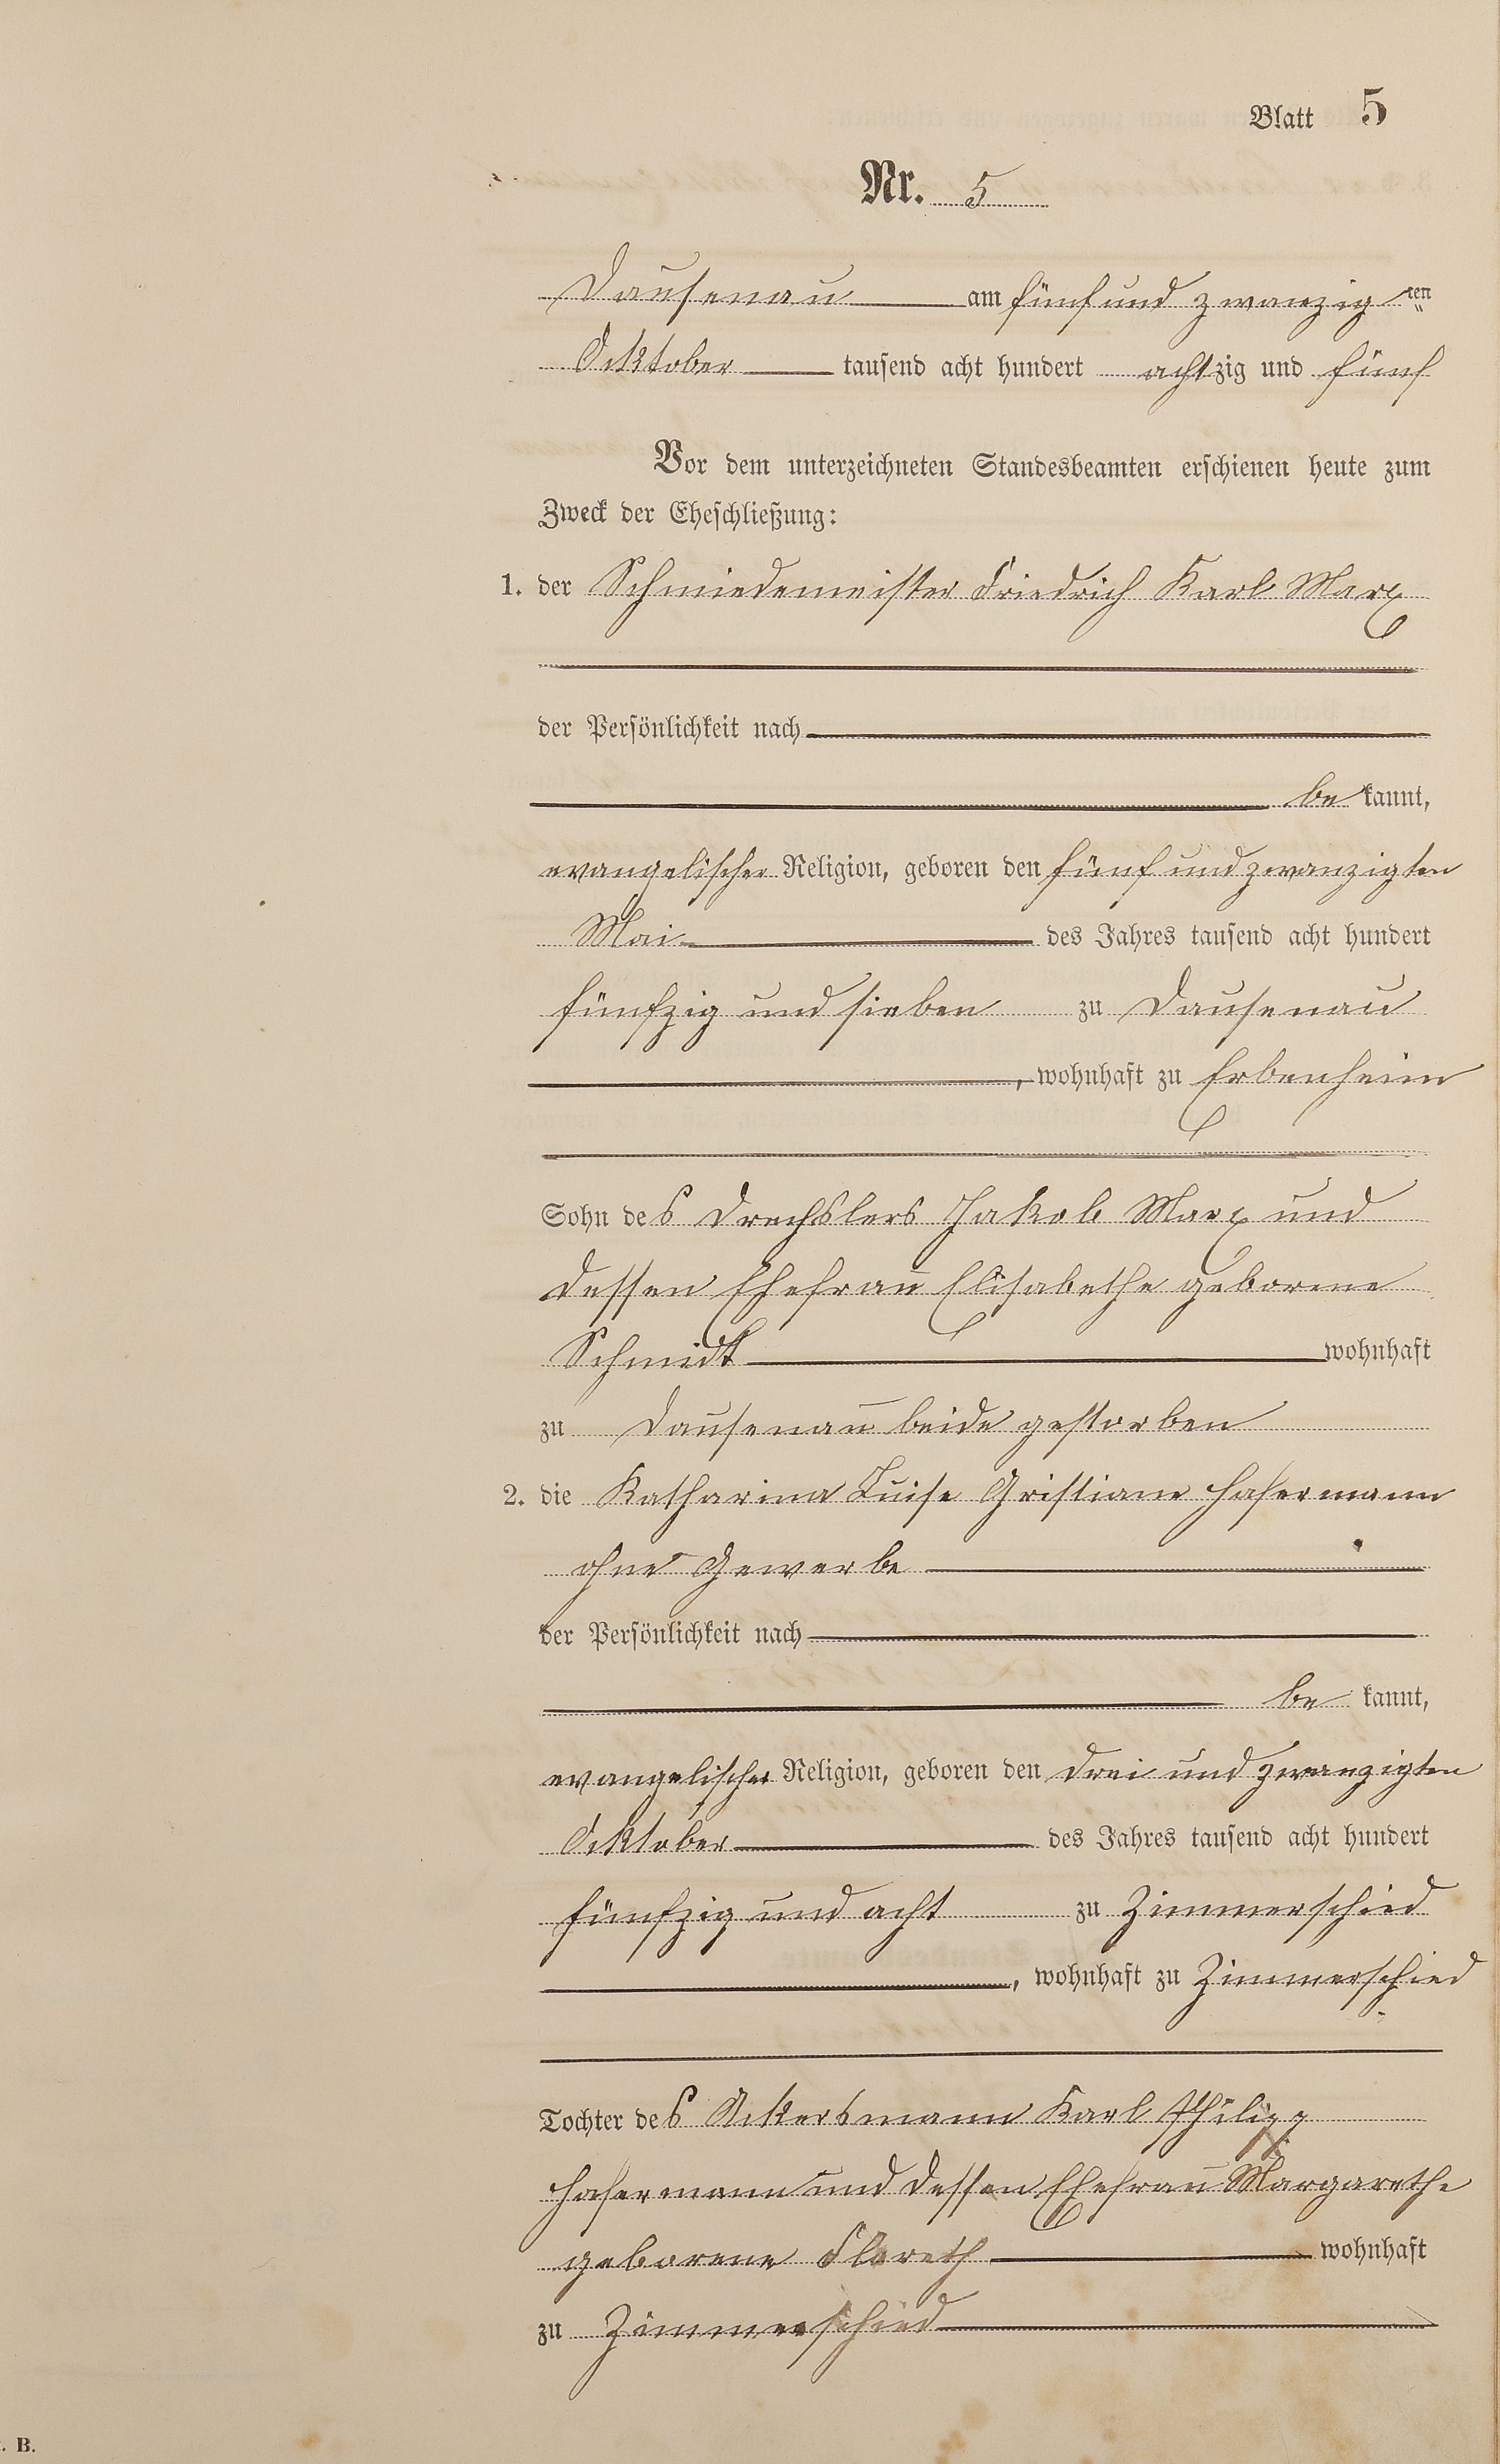 Blatt 5
Nr. 5
Dausenau am fünfund zwanzig ten
Ocktober tausend acht hundert achtzig und fünf
Vor dem unterzeichneten Standesbeamten erschienen heute zum
Zweck der Eheschließung:
1. der Schmiedemeister Friedrich Karl Marx
der Persönlichkeit nach
be kannt,
evangelischer Religion, geboren den fünf und zwanzigten
Mai des Jahres tausend acht hundert
fünfzig und sieben zu Dausenau
, wohnhaft zu Erbenheim
Sohn des Drechslers Jakob Marx und
dessen Ehefrau Elisabethe geborene
Schmidt wohnhaft
zu Dausenau beide gestorben
2. die Katharina Luise Christiane Hafermann
ohne Gewerbe
der Persönlichkeit nach
be kannt,
evangelischer Religion, geboren den drei und zwanzigten
Ocktober des Jahres tausend acht hundert
fünfzig und acht zu Zimmerschied
, wohnhaft zu Zimmerschied
Tochter des Ackersmann Karl Philipp
Hafermann und dessen Ehefrau Margarethe
geborene Floreth wohnhaft
zu Zimmerschied
. B.